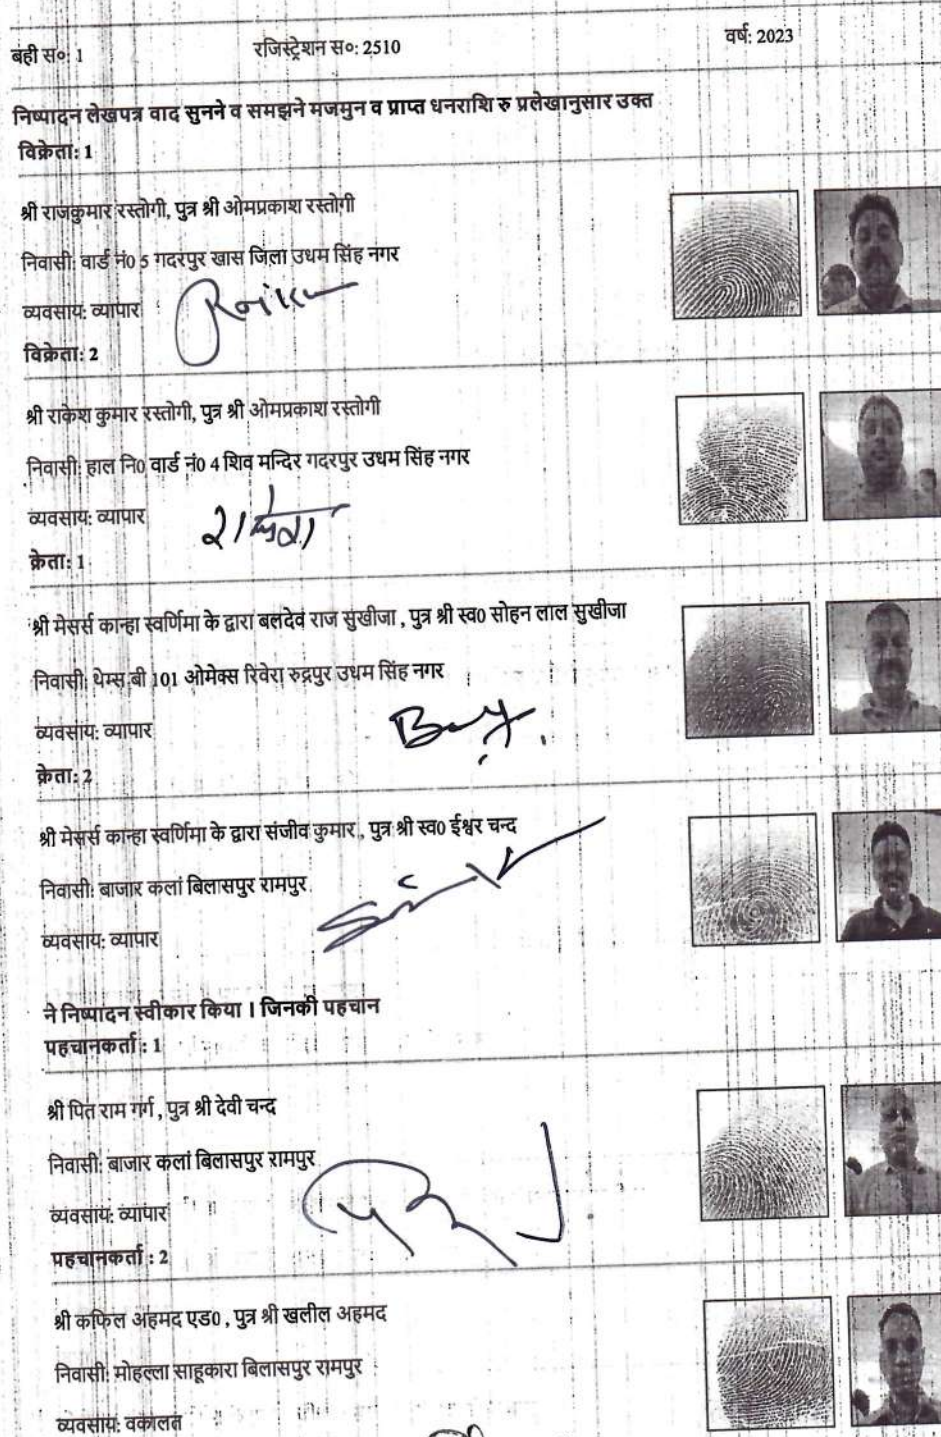 बही स०: 1 रजिस्ट्रेशन स०: 2510 वर्ष: 2023
निष्पादन लेखपत्र वाद सुनने व समझने मजमुन व प्राप्त धनराशि रु प्रलेखानुसार उक्त
विक्रेता: 1
श्री राजकुमार रस्तोगी, पुत्र श्री ओमप्रकाश रस्तोगी
निवासी: वार्ड नं0 5 गदरपुर खास जिला उधम सिंह नगर
व्यवसाय: व्यापार
विक्रेता: 2
श्री राकेश कुमार रस्तोगी, पुत्र श्री ओमप्रकाश रस्तोगी
निवासी: हाल नि0 वार्ड नं0 4 शिव मन्दिर गदरपुर उधम सिंह नगर
व्यवसाय: व्यापार
राकेश
क्रेता: 1
श्री मेसर्स कान्हा स्वर्णिमा के द्वारा बलदेव राज सुखीजा , पुत्र श्री स्व0 सोहन लाल सुखीजा
निवासी: थेम्स बी 101 ओमेक्स रिवेरा रुद्रपुर उधम सिंह नगर
व्यवसाय: व्यापार
क्रेता: 2
श्री मेसर्स कान्हा स्वर्णिमा के द्वारा संजीव कुमार , पुत्र श्री स्व0 ईश्वर चन्द
निवासी: बाजार कलां बिलासपुर रामपुर
व्यवसाय: व्यापार
ने निष्पादन स्वीकार किया । जिनकी पहचान
पहचानकर्ता : 1
श्री पित राम गर्ग , पुत्र श्री देवी चन्द
निवासी: बाजार कलां बिलासपुर रामपुर
व्यवसाय: व्यापार
पहचानकर्ता : 2
श्री कफिल अहमद एड0 , पुत्र श्री खलील अहमद
निवासी: मोहल्ला साहूकारा बिलासपुर रामपुर
व्यवसाय: वकालत